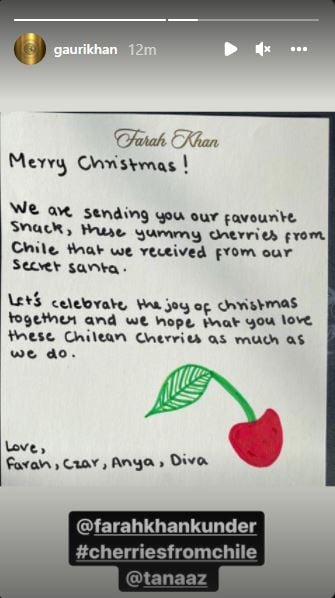 gaurikhan 12m
Farah Khan
Merry Christmas!
We are sending you our favourite
snack, these yummy cherries from
Chile that we received from our
secret santa.
Let's celebrate the joy of christmas
together and we hope that you love
these Chilean Cherries as much as
we do.
Love,
Farah, Czar, Anya, Diva
@farahkhankunder
#cherriesfromchile
@tanaaz